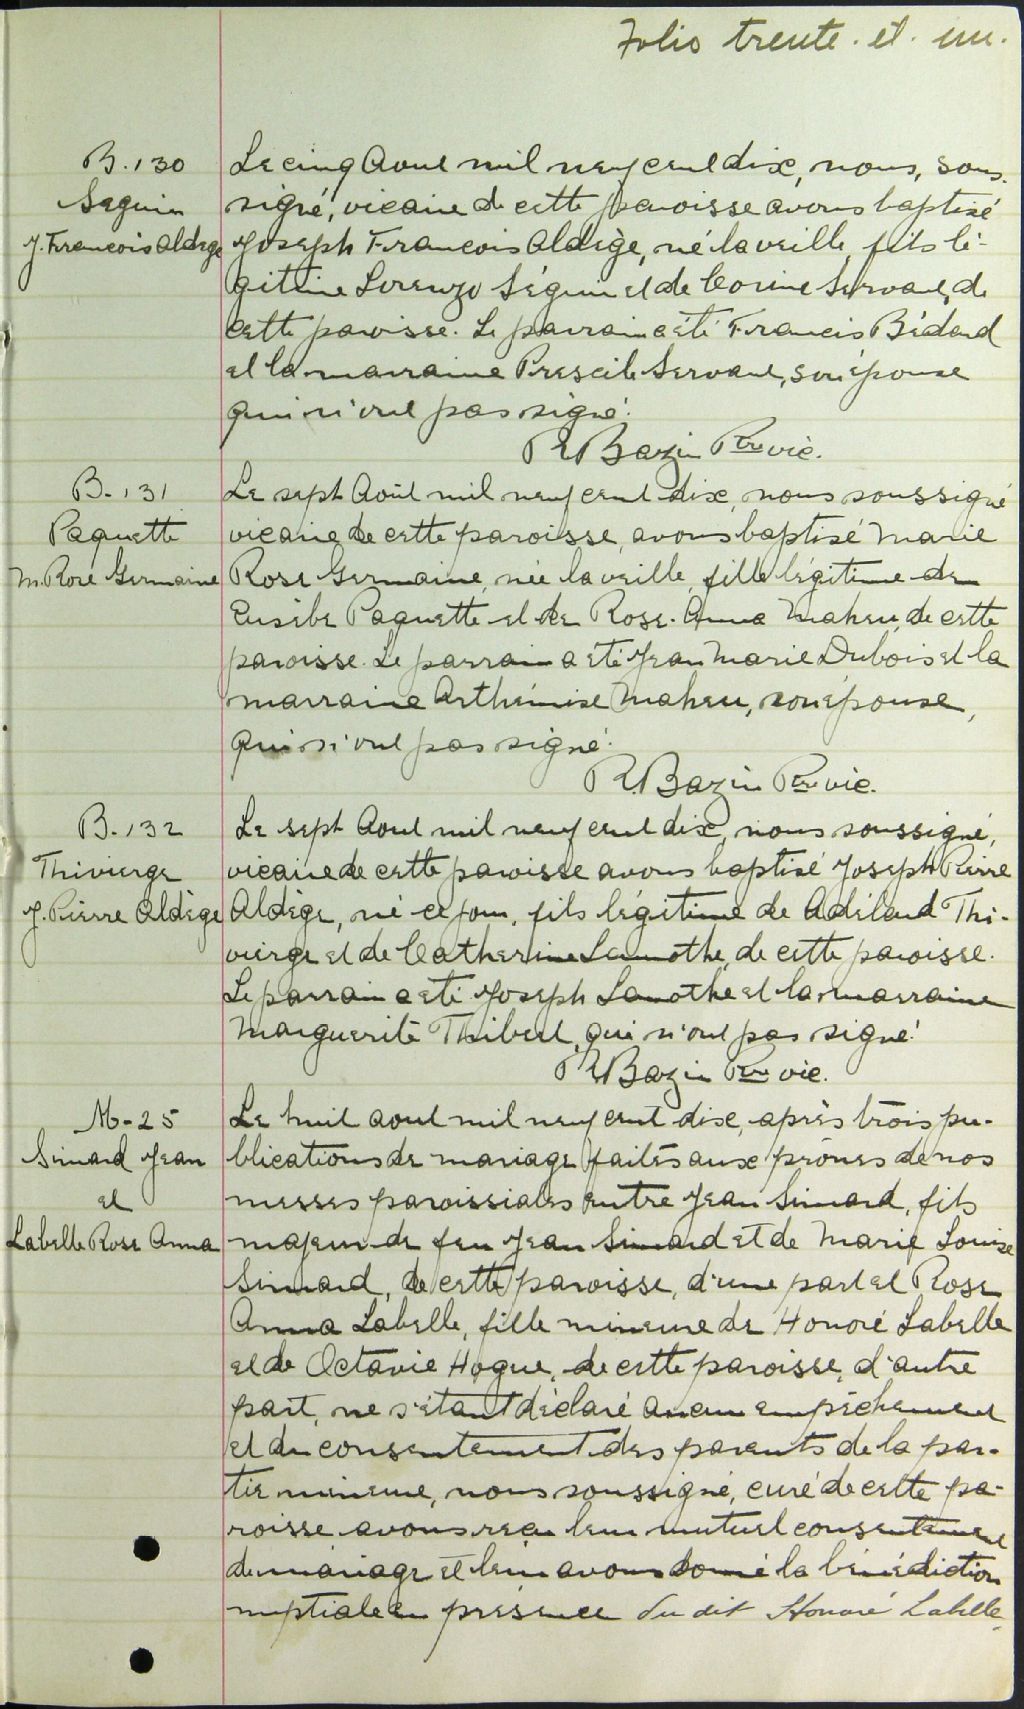 Folio trente. et. un.
B. 130
Seguin
J. Francois Aldège
Le cinq Aout mil neuf cent dix, nous, sous-
signé, vicaire de cette paroisse avons baptisé
Joseph Francois Aldège, né la veille, fils lé-
gitime Lorenzo Séguin et de Corine Servant, de
cette paroisse. Le parrain a été Francis Bédard
et la marraine Prescile Servant, son épouse
qui n'ont pas signé.
R Bazin Ptre vic.
B. 131
Paquette
M. Rose Germaine
Le sept Août mil neuf cent dix, nous soussigné
vicaire de cette paroisse, avons baptisé Marie
Rose Germaine, née la veille, fille légitime de
Eusèbe Paquette et de Rose-Anna Maheu, de cette
paroisse. Le parrain a été Jean Marie Dubois et la
marraine Arthémise Maheu, son épouse,
qui n'ont pas signé.
R. Bazin Ptre vic.
B. 132
Thivierge
J. Pierre Aldège
Le sept Aout mil neuf cent dix, nous soussigné,
vicaire de cette paroisse avons baptisé Joseph Pierre
Aldège, né ce jour, fils légitime de Adélard Thi-
vierge et de Catherine Lamothe, de cette paroisse.
Le parrain a été Joseph Lamothe et la marraine
Marguerite Thibert, qui n'ont pas signé.
R Bazin Ptre vic.
M-25
Simard Jean
et
Labelle Rose Anna
Le huit aout mil neuf cent dix, après trois pu-
blications de mariage faites aux prônes de nos
messes paroissiales entre Jean Simard, fils
majeur de feu Jean Simard et de Marie Louise
Simard, de cette paroisse, d'une part et Rose
Anna Labelle, fille mineure de Honoré Labelle
et de Octavie Hogue, de cette paroisse, d'autre
part, ne s'étant déclaré aucun empêchement
et du consentement des parents de la par-
tie mineure, nous soussigné, curé de cette pa-
roisse avons reçu leur mutuel consentement
de mariage et leur avons donné la bénédiction
nuptiale en présence du dit Honoré Labelle,